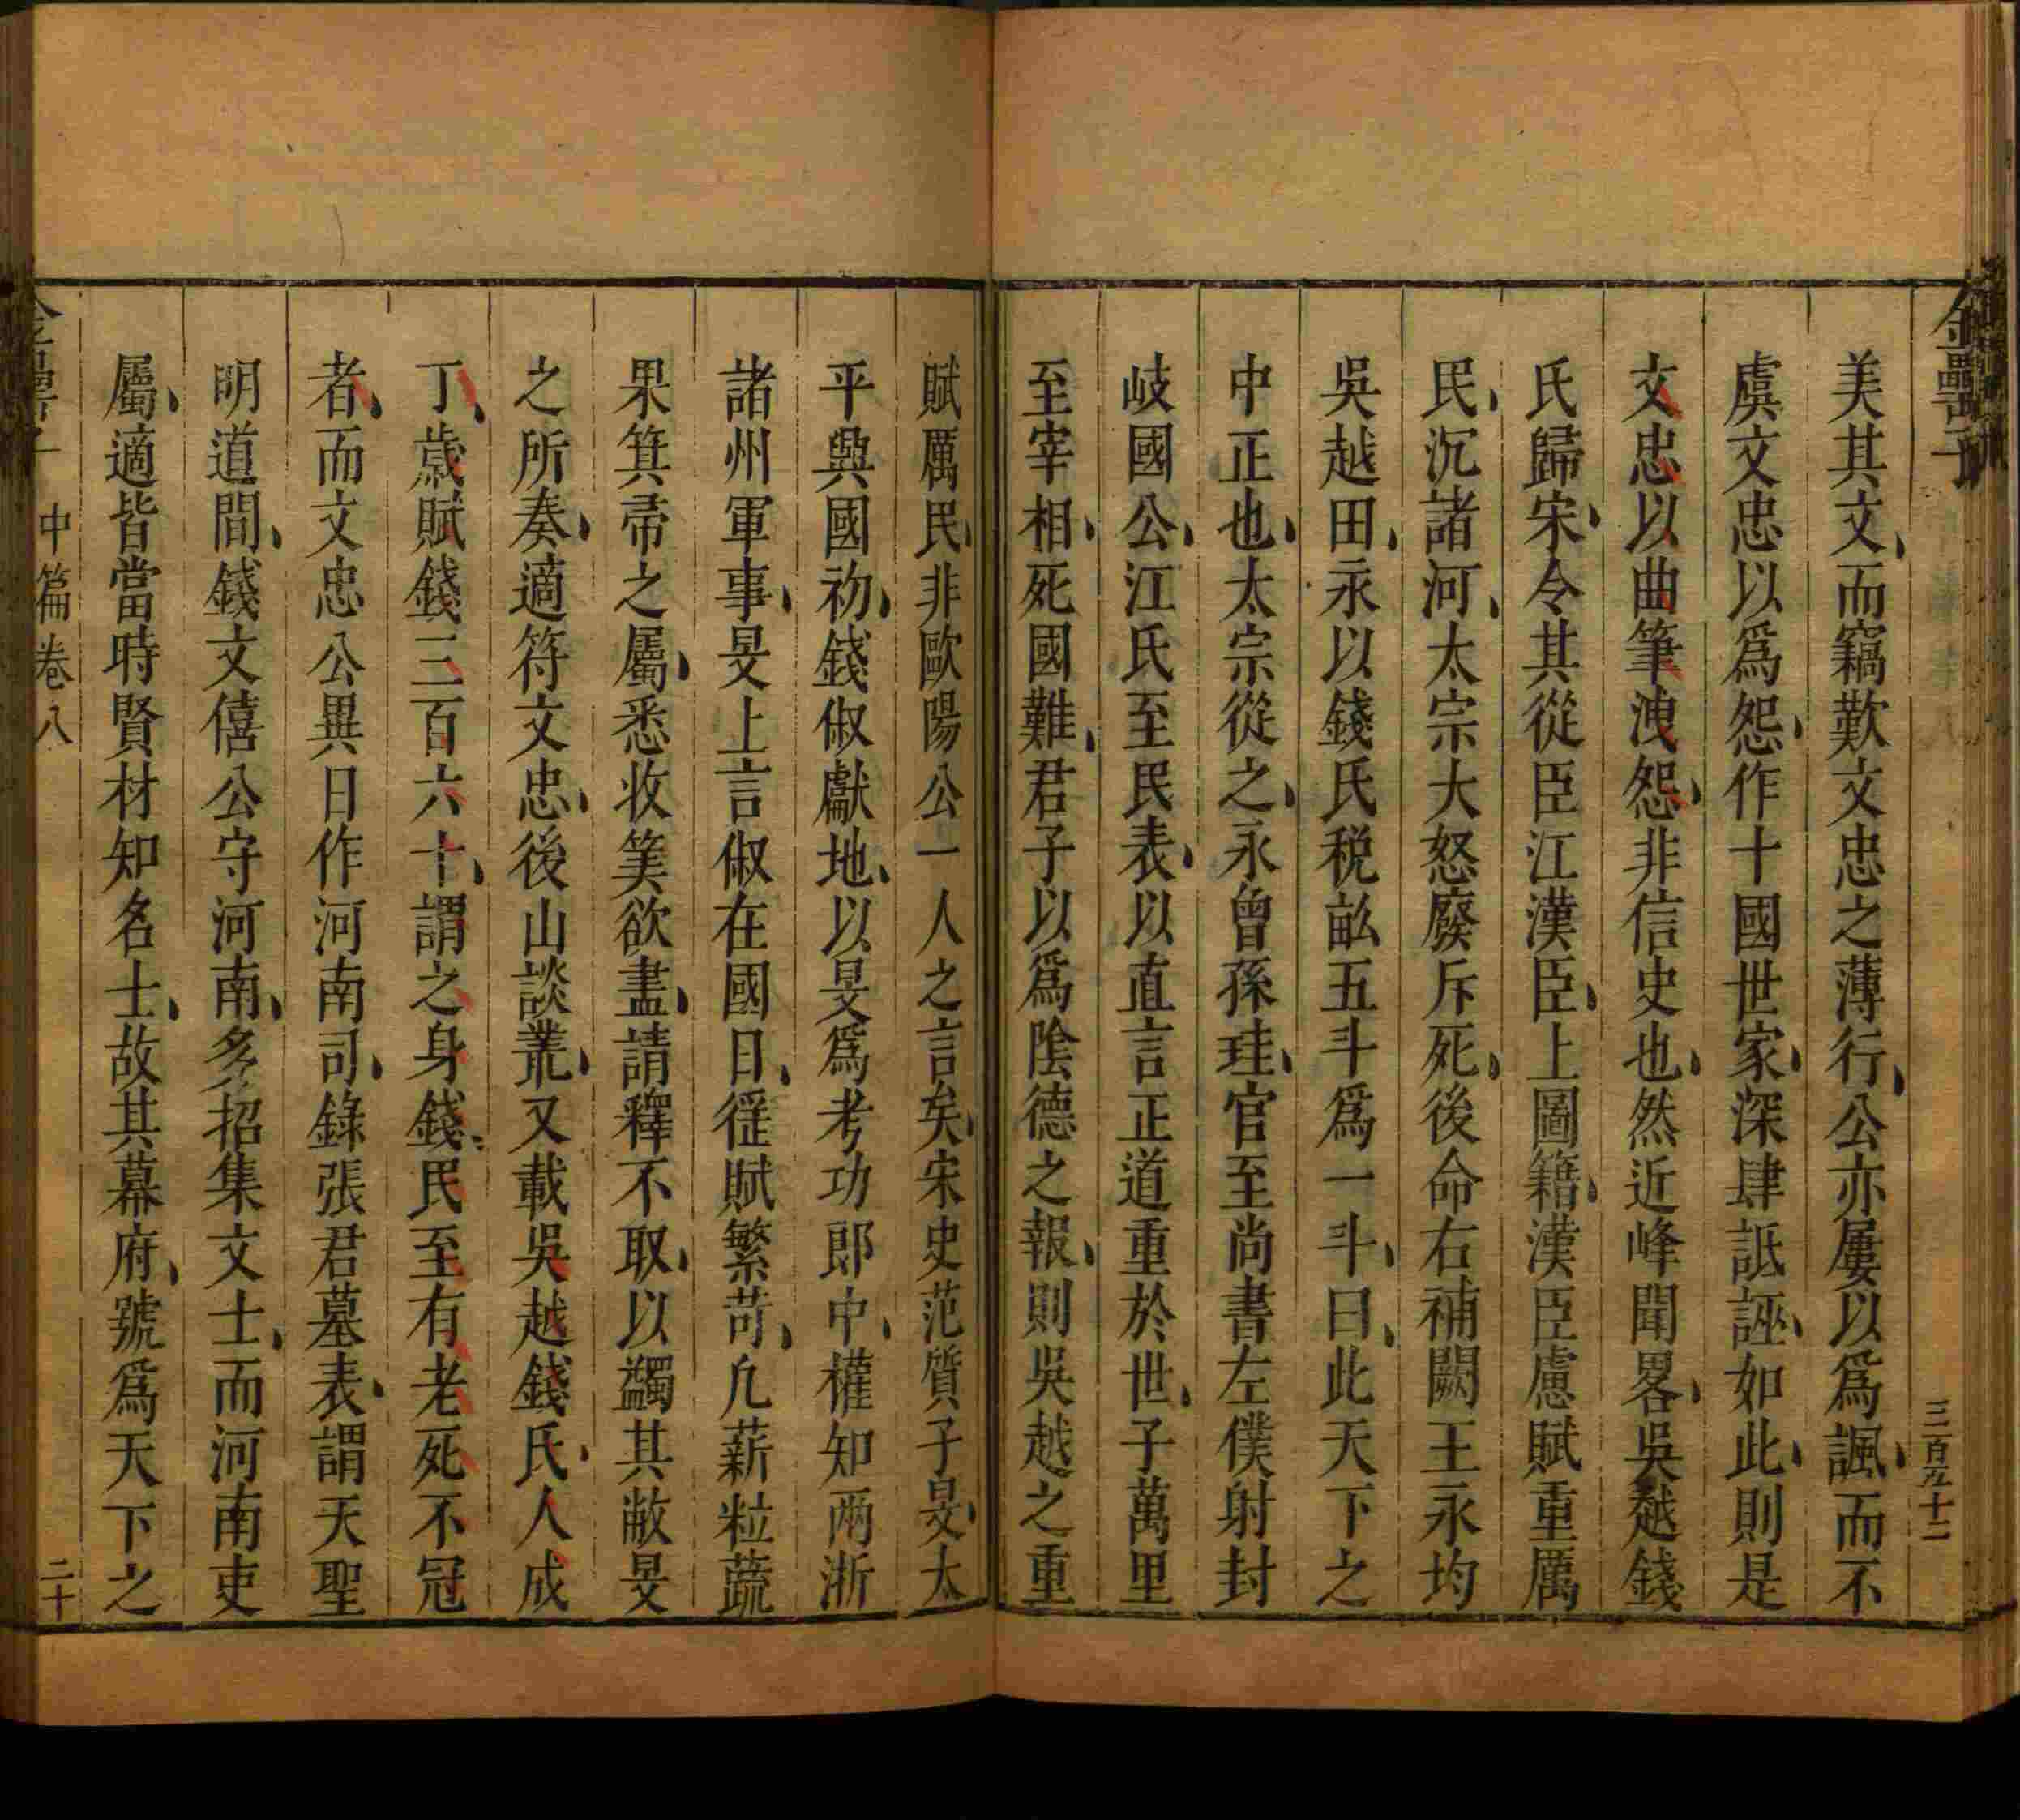 金罍子
三百九十二
美其文而竊歎文忠之薄行公亦屢以爲諷而不
虞文忠以爲怨作十國世家深肆詆誣如此則是
文忠以曲筆洩怨非信史也然近峰聞畧吳越錢
氏歸宋令其從臣江漢臣上圖籍漢臣慮賦重厲
民沉諸河太宗大怒廢斥死後命右補闕王永均
吳越田永以錢氏稅畝五斗爲一斗曰此天下之
中正也太宗從之永曾孫珪官至尚書左僕射封
岐國公江氏至民表以直言正道重於世子萬里
至宰相死國難君子以爲陰德之報則吳越之重
賦厲民非歐陽公一人之言矣宋史范質子旻太
平興國初錢俶獻地以旻爲考功郎中權知兩浙
諸州軍事旻上言俶在國日徭賦繁苛凢薪粒蔬
果箕帚之屬悉收筭欲盡請釋不取以蠲其敝旻
之所奏適符文忠後山談叢又載吳越錢氏人成
丁歲賦錢三百六十謂之身錢民至有老死不冠
者而文忠公異日作河南司錄張君墓表謂天聖
明道間錢文僖公守河南多招集文士而河南吏
屬適皆當時賢材知名士故其幕府號爲天下之
中篇卷八
二十